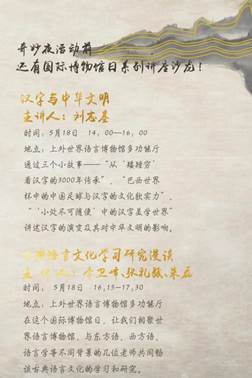 奇妙夜活动前
还有国际博物馆日系列讲座沙龙！
汉字与中华文明
主讲人：刘志基
时间：5月18日 14：00—16：00
地点：上外世界语言博物馆多功能厅
通过三个小故事——“从‘矮矬穷’
看汉字的3000年传承”、“巴西世界
杯中的中国足球与汉字的文化软实力”、
“‘小处不可随便’中的汉字美学世界”
讲述汉字的演变及其对中华文明的影响。
语言文化学习研究漫谈
时间：5月18日 16:15—17:30
地点：上外世界语言博物馆多功能厅
在这个国际博物馆日，让我们相聚世
界语言博物馆，与东方语、西方语、
语言学等不同背景的几位老师共同畅
谈古典语言文化的学习和研究。